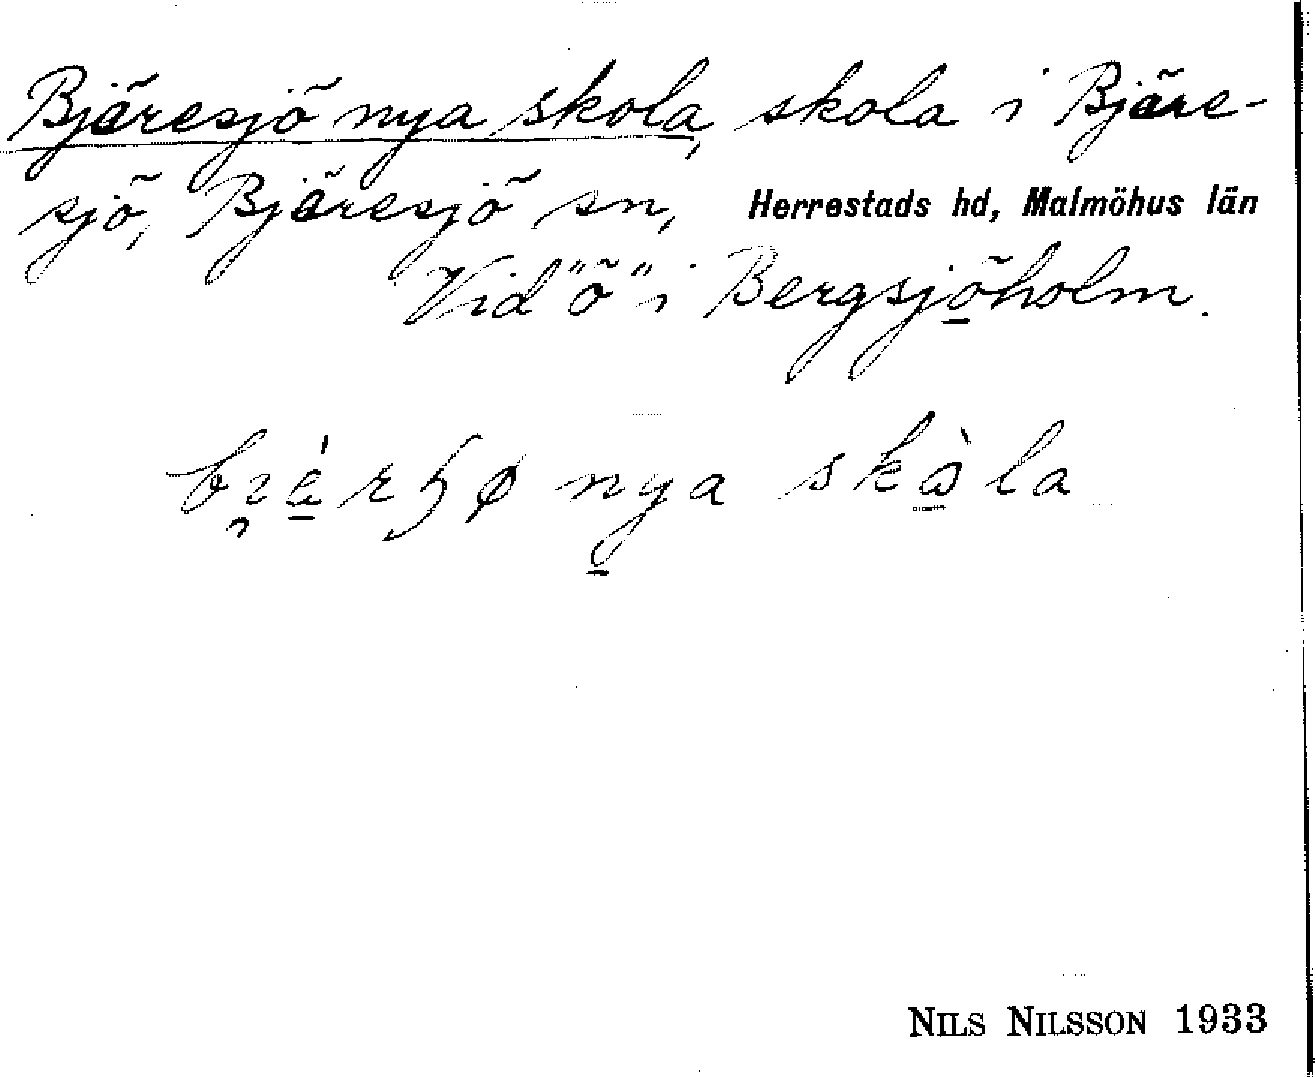 Bjäresjö nya skola, skola i Bjäre-
sjö, Bjäresjö sn, Herrestads hd, Malmöhus län
Vid "ö" i Bergsjöholm.
nya
NILS NILSSON 1933